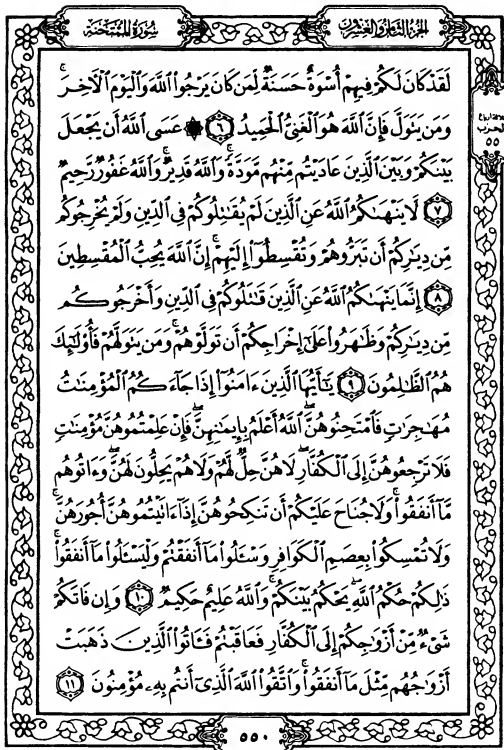 سُورَةُ الْمُمْتَحنَةِ
الجُزءُ الثَّامِنُ وَالعِشْرُونَ
لَقَدْ كَانَ لَكُمْ فِيهِمْ أُسْوَةٌ حَسَنَةٌ لِّمَن كَانَ يَرْجُوا۟ ٱللَّهَ وَٱلْيَوْمَ ٱلْءَاخِرَ ۚ
وَمَن يَتَوَلَّ فَإِنَّ ٱللَّهَ هُوَ ٱلْغَنِىُّ ٱلْحَمِيدُ ٦ ۞ عَسَى ٱللَّهُ أَن يَجْعَلَ
بَيْنَكُمْ وَبَيْنَ ٱلَّذِينَ عَادَيْتُم مِّنْهُم مَّوَدَّةً ۚ وَٱللَّهُ قَدِيرٌ ۚ وَٱللَّهُ غَفُورٌ رَّحِيمٌ
٧ لَا يَنْهَىٰكُمُ ٱللَّهُ عَنِ ٱلَّذِينَ لَمْ يُقَٰتِلُوكُمْ فِى ٱلدِّينِ وَلَمْ يُخْرِجُوكُم
مِّن دِيَٰرِكُمْ أَن تَبَرُّوهُمْ وَتُقْسِطُوٓا۟ إِلَيْهِمْ ۚ إِنَّ ٱللَّهَ يُحِبُّ ٱلْمُقْسِطِينَ
٨ إِنَّمَا يَنْهَىٰكُمُ ٱللَّهُ عَنِ ٱلَّذِينَ قَٰتَلُوكُمْ فِى ٱلدِّينِ وَأَخْرَجُوكُم
مِّن دِيَٰرِكُمْ وَظَٰهَرُوا۟ عَلَىٰٓ إِخْرَاجِكُمْ أَن تَوَلَّوْهُمْ ۚ وَمَن يَتَوَلَّهُمْ فَأُو۟لَٰٓئِكَ
هُمُ ٱلظَّٰلِمُونَ ٩ يَٰٓأَيُّهَا ٱلَّذِينَ ءَامَنُوٓا۟ إِذَا جَآءَكُمُ ٱلْمُؤْمِنَٰتُ
مُهَٰجِرَٰتٍ فَٱمْتَحِنُوهُنَّ ۖ ٱللَّهُ أَعْلَمُ بِإِيمَٰنِهِنَّ ۖ فَإِنْ عَلِمْتُمُوهُنَّ مُؤْمِنَٰتٍ
فَلَا تَرْجِعُوهُنَّ إِلَى ٱلْكُفَّارِ ۖ لَا هُنَّ حِلٌّ لَّهُمْ وَلَا هُمْ يَحِلُّونَ لَهُنَّ ۖ وَءَاتُوهُم
مَّآ أَنفَقُوا۟ ۚ وَلَا جُنَاحَ عَلَيْكُمْ أَن تَنكِحُوهُنَّ إِذَآ ءَاتَيْتُمُوهُنَّ أُجُورَهُنَّ ۚ
وَلَا تُمْسِكُوا۟ بِعِصَمِ ٱلْكَوَافِرِ وَسْـَٔلُوا۟ مَآ أَنفَقْتُمْ وَلْيَسْـَٔلُوا۟ مَآ أَنفَقُوا۟ ۚ
ذَٰلِكُمْ حُكْمُ ٱللَّهِ ۖ يَحْكُمُ بَيْنَكُمْ ۚ وَٱللَّهُ عَلِيمٌ حَكِيمٌ ١٠ وَإِن فَاتَكُمْ
شَىْءٌ مِّنْ أَزْوَٰجِكُمْ إِلَى ٱلْكُفَّارِ فَعَاقَبْتُمْ فَـَٔاتُوا۟ ٱلَّذِينَ ذَهَبَتْ
أَزْوَٰجُهُم مِّثْلَ مَآ أَنفَقُوا۟ ۚ وَٱتَّقُوا۟ ٱللَّهَ ٱلَّذِىٓ أَنتُم بِهِۦ مُؤْمِنُونَ ١١
الحزب
٥٥
٥٥٠